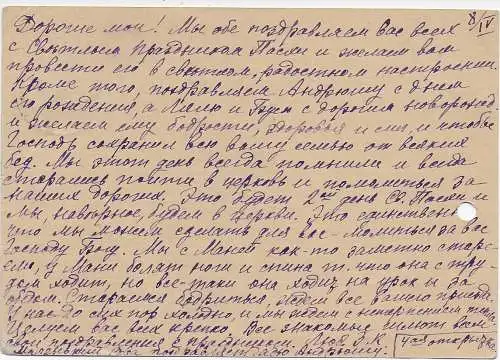 8/IV
Дорогие мои! Мы обе поздравляем вас всех
с Светлым праздником Пасхи и желаем вам
провести его в светлом, радостном настроении.
Кроме того, поздравляем Андрюшу с днем
его рождения, а Лелю и с дорогим новорожд
и желаем ему бодрости, здоровья и сил, и чтобы
Господь сохранил всю вашу семью от всяких
бед. Мы этот день всегда помнили и всегда
старались пойти в церковь и помолиться за
наших дорогих. Это будет 2ой день Св. Пасхи и
мы, наверное, будем в церкви. Это единственно
что мы можем сделать для вас - молиться за вас
Господу Богу. Мы с Маней как-то заметно старе-
ем, у Мани болят ноги и спина т. что она с тру-
дом ходит, но все-таки она ходит на урок и за
Стараемся бодриться, ждем все вашего приезда
У нас до сих пор холодно, и мы ждем с нетерпением
Целуем вас всех крепко. Все знакомые шлют вам
свои поздравления с праздником.